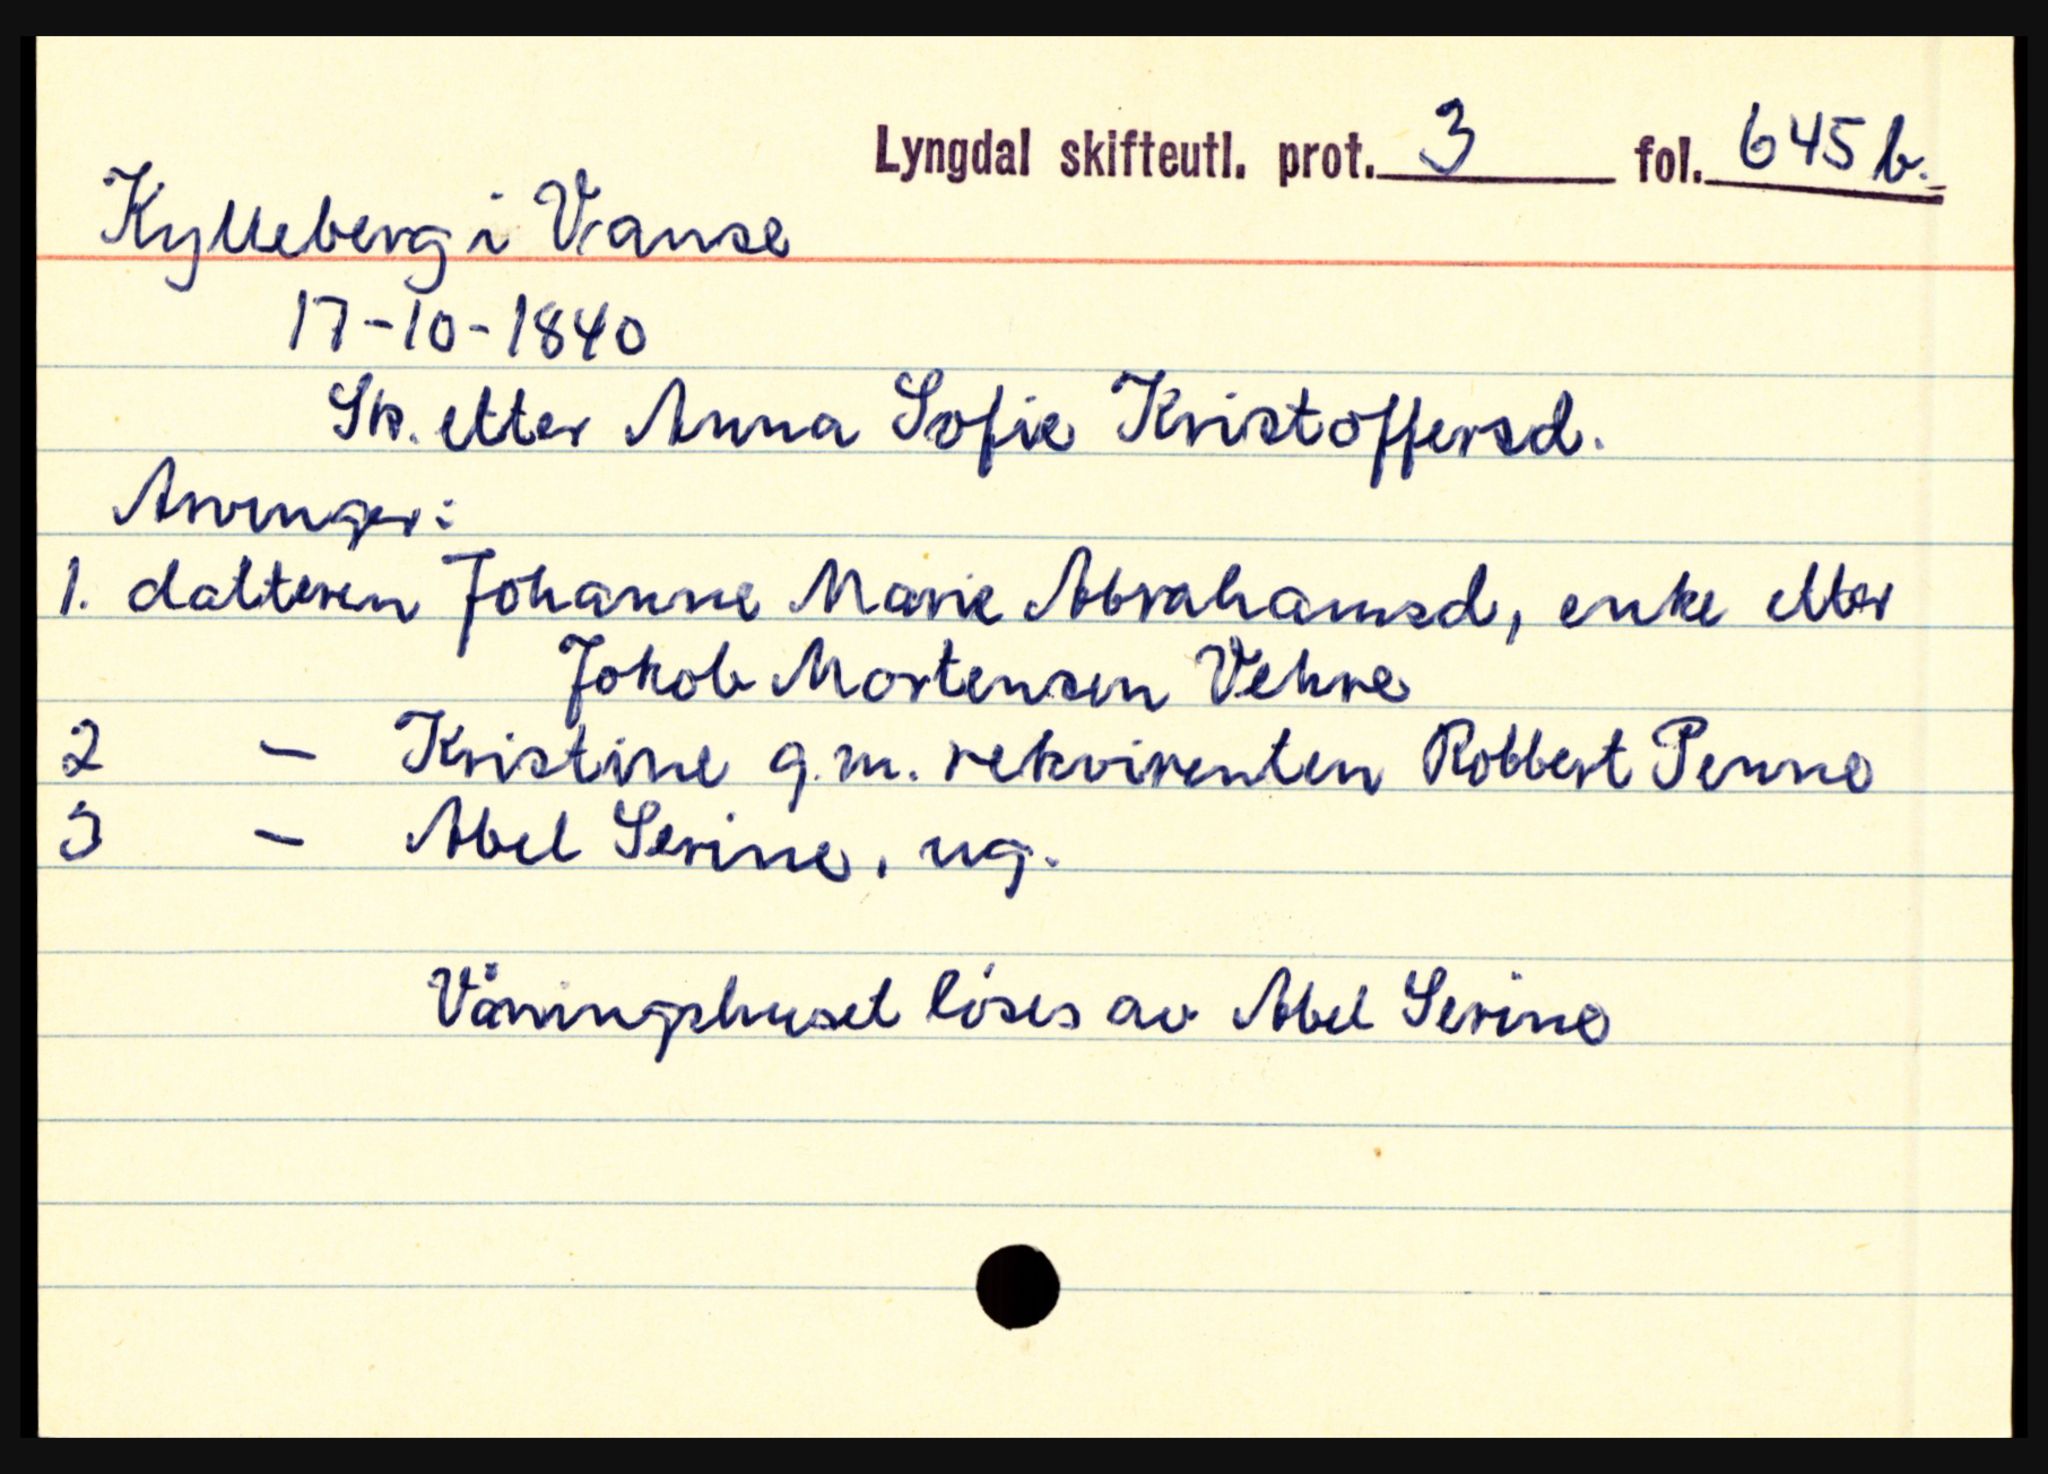 Lyngdal skifteutl. prot. 3 fol. 645 b.
Kylleberg i Vanse
17-10-1840
Sk. etter Anna Sofie Kristoffersd.
Arvinger:
1. datteren Johanne Marie Abrahamsd, enke etter
Jokob Mortensen Vehre
2 - Kristine g.m. rekvirenten Robbert Penne
3 - Abel Serine, ug.
Våningshuset löses av Abel Serine